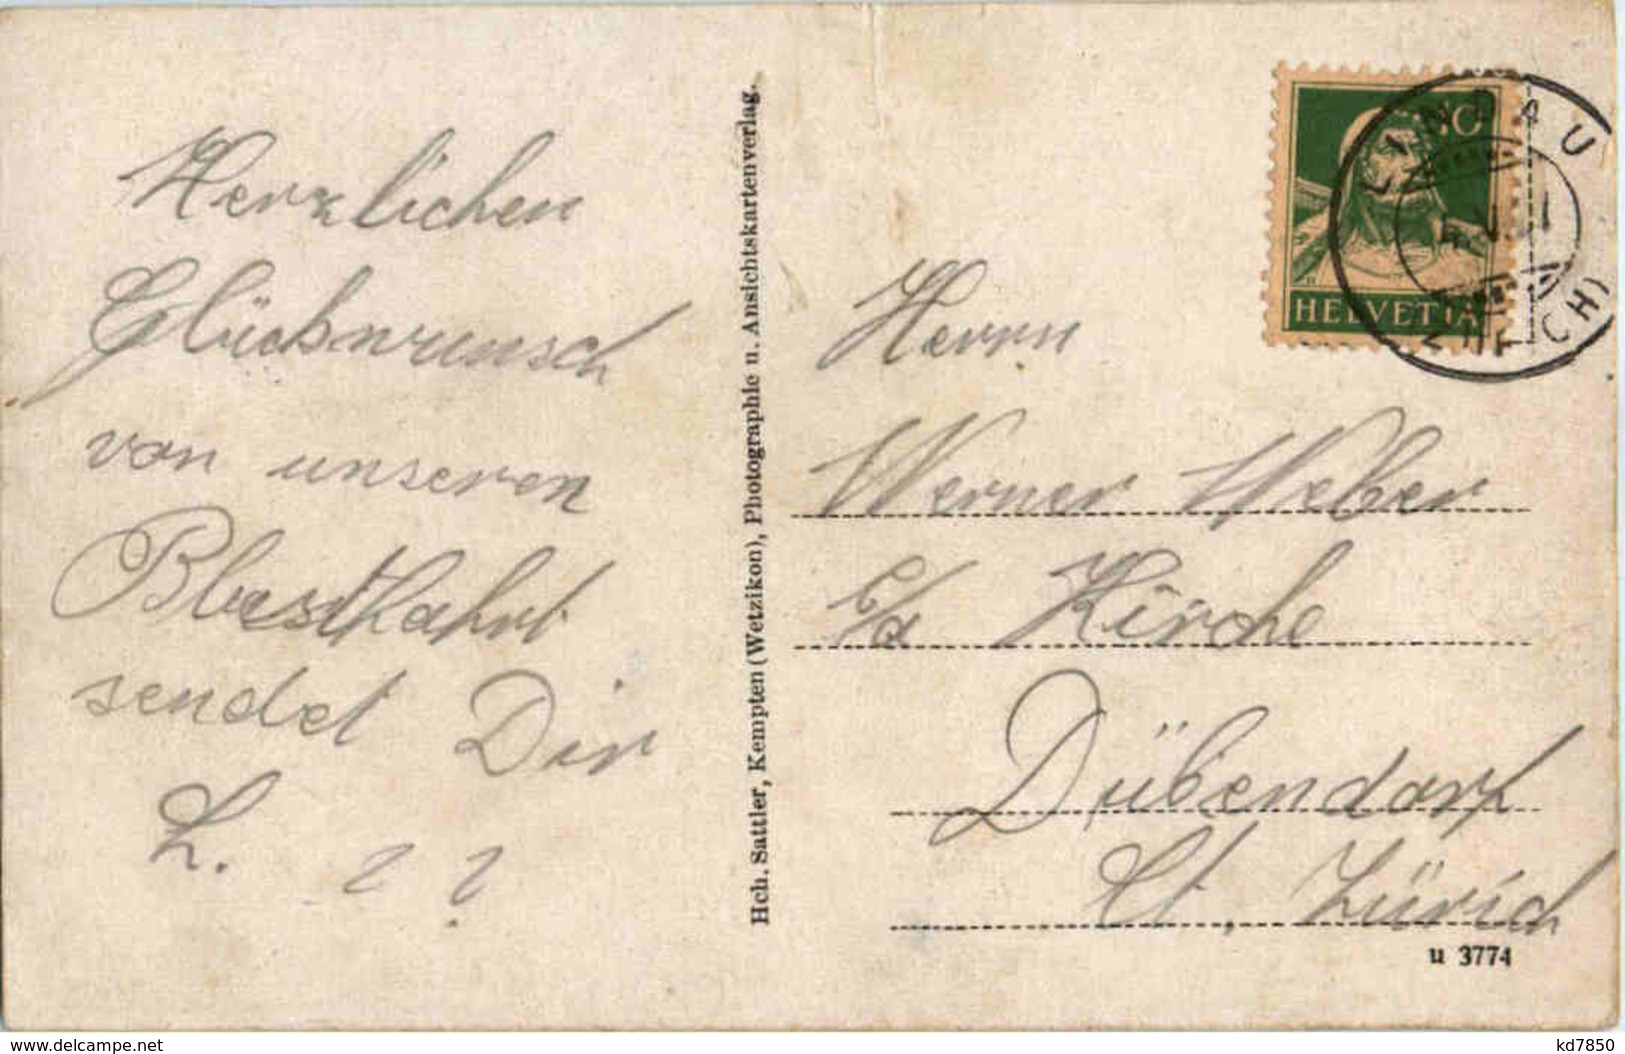 Herzlichen
Glückwunsch
von unseren
sendet Dir
L. ? ?
Hch. Sattler, Kempten (Wetzikon), Photographie u. Ansichtskartenverlag.
10
HELVETIA
LINDAU
(ZÜRICH)
Herrn
Werner Weber
Kirche
Dübendorf
Ct. Zürich
u 3774
delcampe.net
kd7850